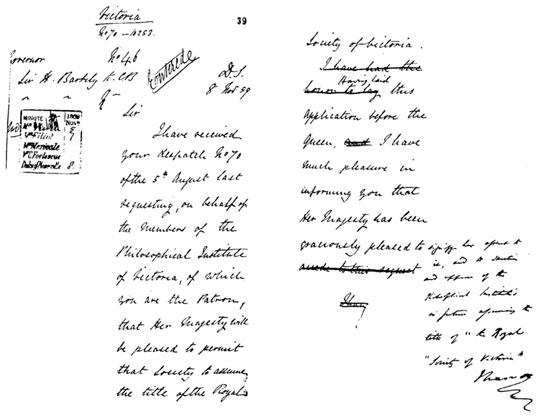 Victoria
No 70 — 10253
39
Governor
No 46
Sir H. Barkly K.C.B.
D.S.
8 Nov 59
Sir
I have received
your despatch No 70
of the 5th August last
requesting, on behalf of
the Members of the
Philosophical Institute
of Victoria, of which
you are the Patron,
that Her Majesty will
be pleased to permit
that Society to assume
the title of the Royal
MINUTE
Mr Elliot
Mr Merivale
Mr Fortescue
Duke of Newcastle 8
Society of Victoria.
I have had the
honor to lay Having laid this
application before the
Queen, and I have
much pleasure in
informing you that
Her Majesty has been
graciously pleased to signify her assent to
accede to this request
it, and to sanction
and approve of the
Philosophical Institute's
in future assuming the
title of "the Royal
"Society of Victoria"